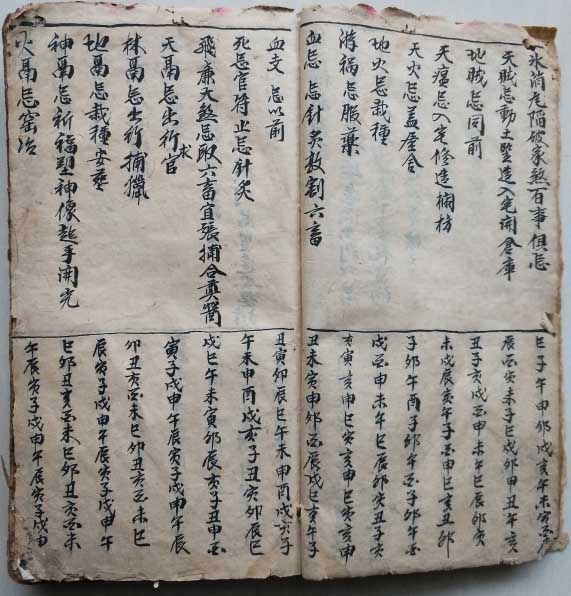 氷消瓦陷破家煞百事俱忌
天賊忌動土竪造入宅開倉庫
地賊忌同前
天瘟忌入宅修造欄枋
天火忌盖屋合
地火忌栽種
游禍忌服藥
血忌 忌針炙教割六畜
血支 忌以前
死忌官符止忌針炙
飛廉大煞忌取六畜宜張捕合真
天鬲忌出行求官
林鬲忌出行捕獵
地鬲忌栽種安葬
神鬲忌祈福塑神像起手開光
火鬲忌窑冶
巳子申卯戌亥午未寅酉
辰酉寅未子巳戌卯申丑午亥
丑子亥戌酉申未午巳辰卯寅
未戌辰寅午子酉申巳亥丑卯
子卯午酉子卯午酉子卯午酉
戌酉申未午巳辰卯寅丑子亥
寅亥申巳寅亥申巳寅亥申
丑未寅申卯酉辰戌巳亥午子
丑寅卯辰巳午未申酉戌亥子
午未申酉戌亥子丑寅卯辰巳
戌巳午未寅卯辰亥子丑申酉
寅子戌申午辰寅子戌申午辰
卯丑亥酉未巳卯丑亥酉未巳
辰寅子戌申午辰寅子戌申午
巳卯丑亥酉未巳卯丑亥酉未
午辰寅子戌申午辰寅子戌申